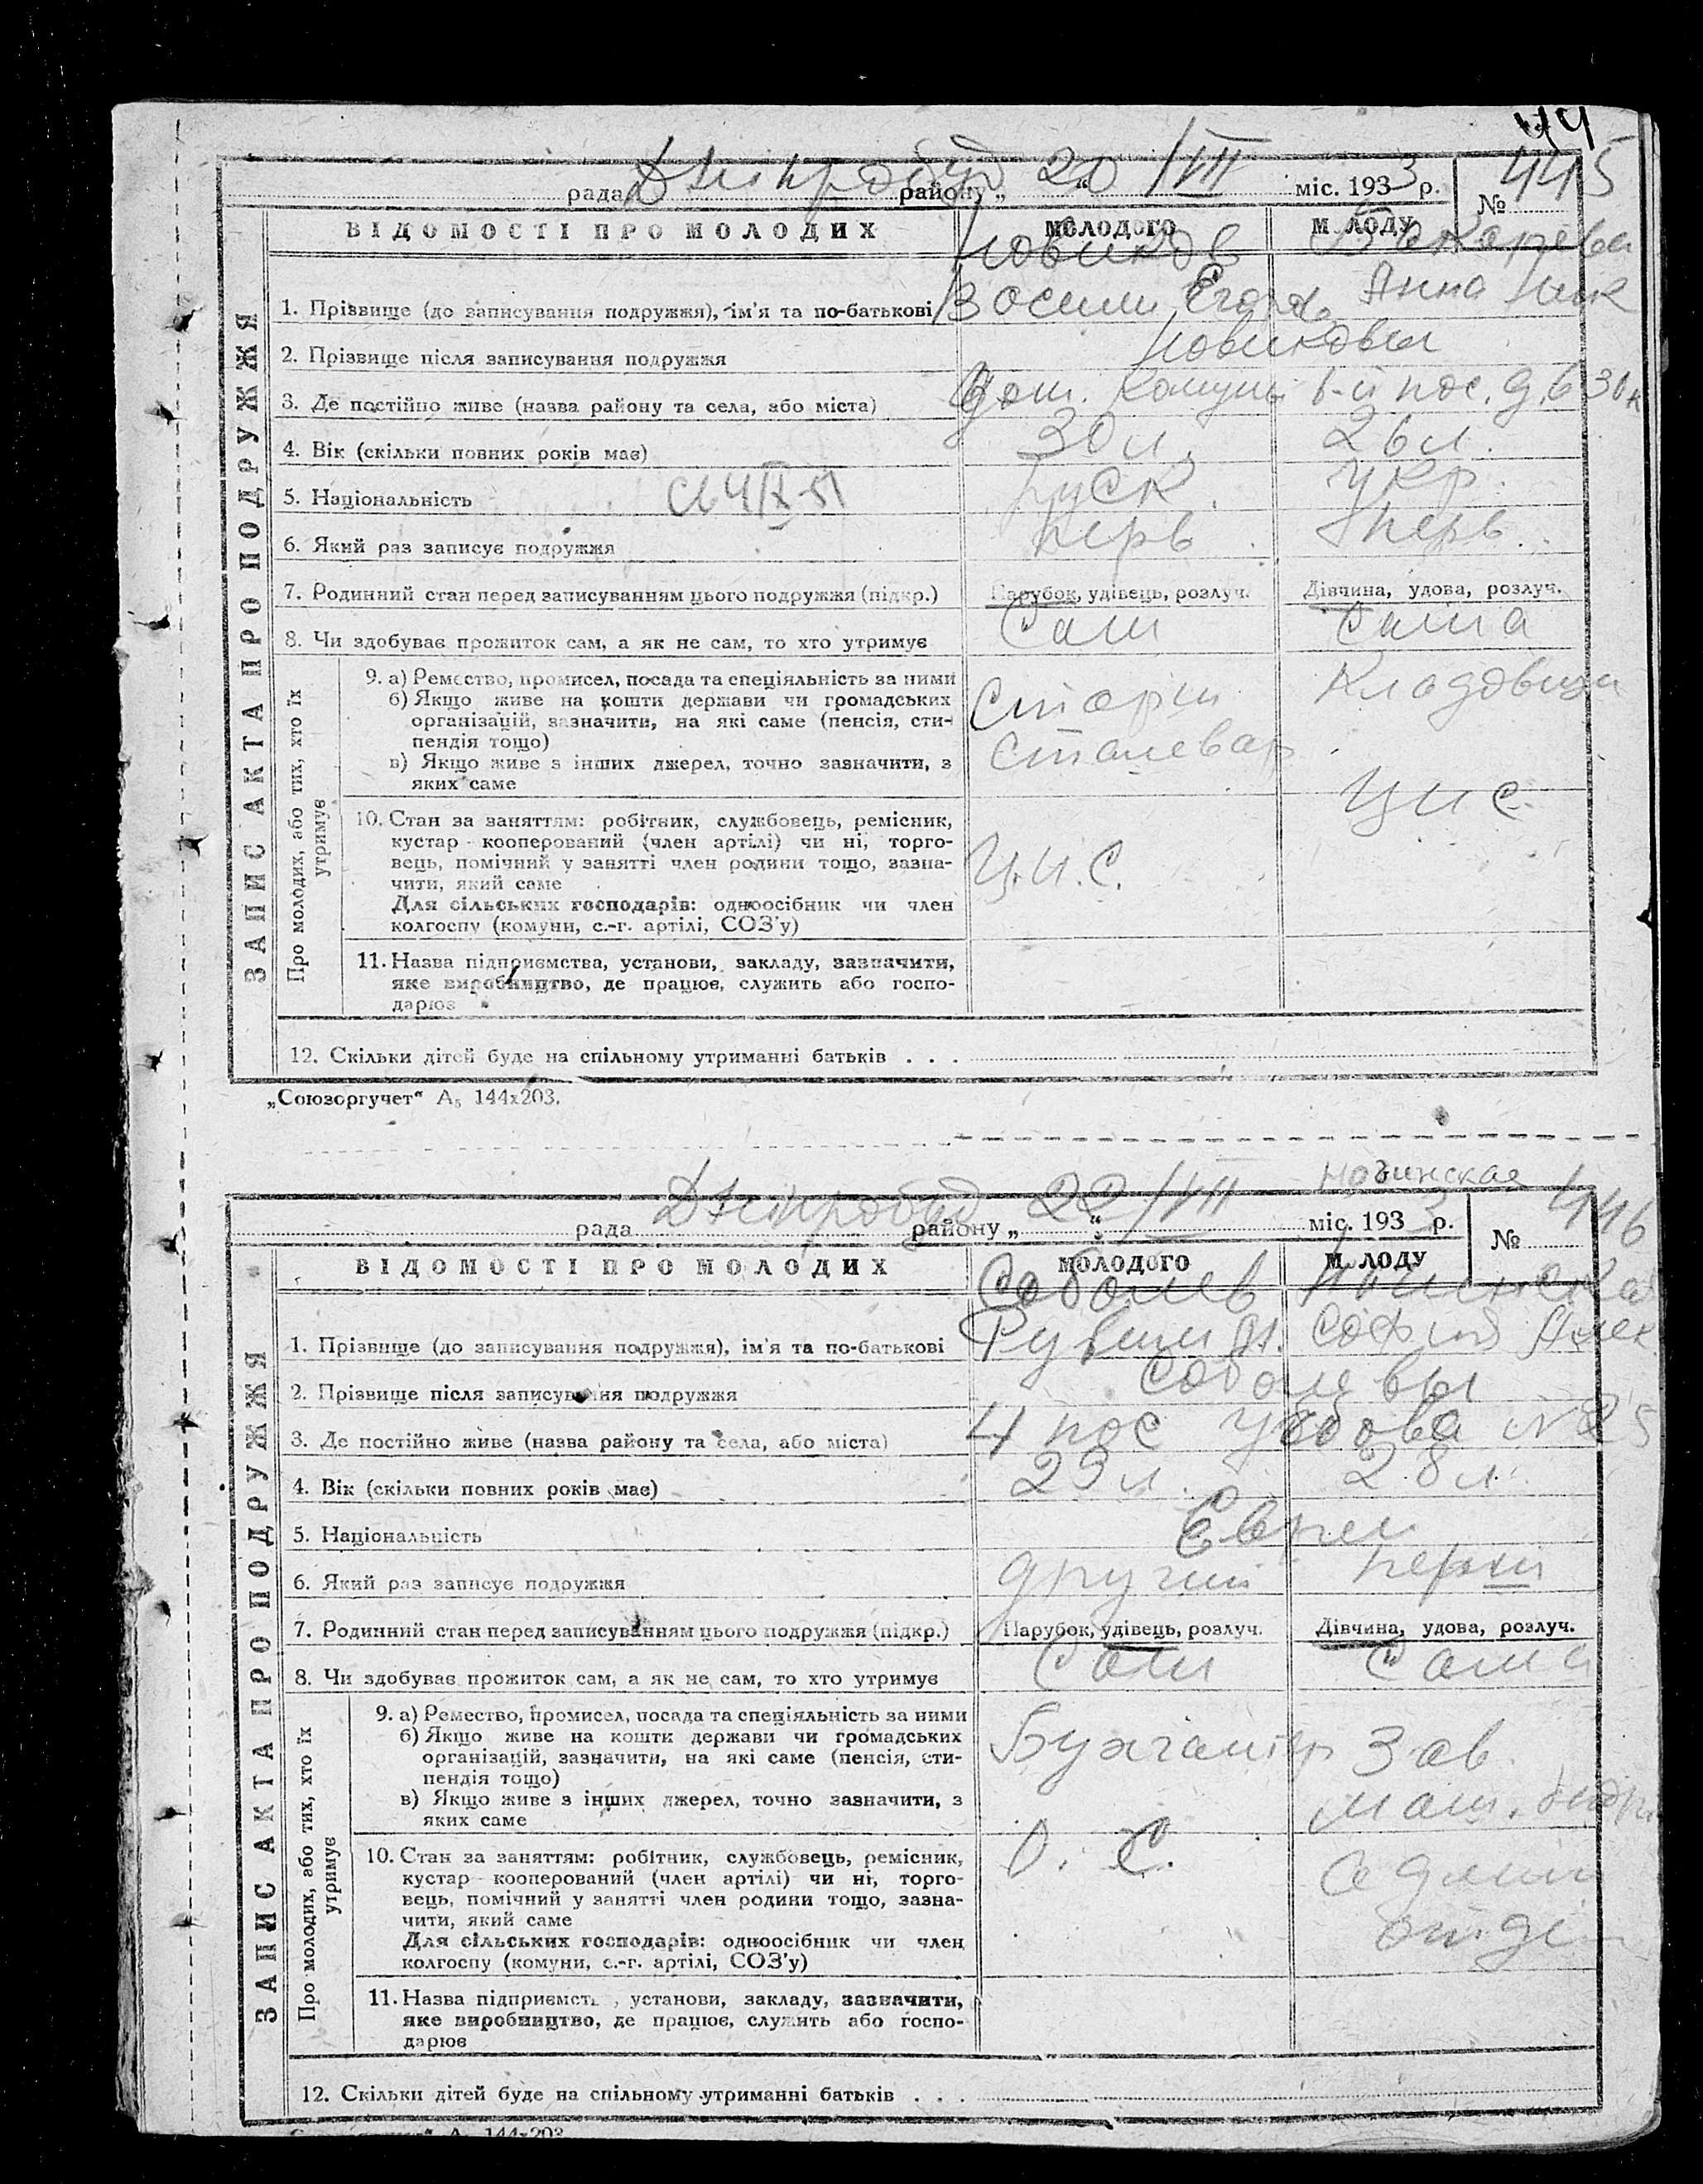 44
рада Дніпробуд району „ 20 “ /VII міс. 1933 р. № 445
ВІДОМОСТІ ПРО МОЛОДИХ МОЛОДОГО М ЛОДУ
ЗАПИС АКТА ПРО ПОДРУЖЖЯ
Новиков
1. Прізвище (до записування подружжя), ім'я та по-батькові Егоров Анна Ник
2. Прізвище після записування подружжя Новиковы
3. Де постійно живе (назва району та села, або міста) 6-й пос. д. 6 30
4. Вік (скільки повних років має) 30 л. 26 л.
5. Національність Руск. Укр.
6. Який раз записує подружжя перв. перв.
7. Родинний стан перед записуванням цього подружжя (підкр.) Парубок, удівець, розлуч. Дівчина, удова, розлуч.
8. Чи здобуває прожиток сам, а як не сам, то хто утримує Сам Сама
Про молодих, або тих, хто їх утримує
9. а) Ремество, промисел, посада та спеціяльність за ними
б) Якщо живе на кошти держави чи громадських
організацій, зазначити, на які саме (пенсія, сти-
пендія тощо)
в) Якщо живе з інших джерел, точно зазначити, з
яких саме
Сталевар
Кладовщ
10. Стан за заняттям: робітник, службовець, ремісник,
кустар кооперований (член артілі) чи ні, торго-
вець, помічний у занятті член родини тощо, зазна-
чити, який саме
Для сільських господарів: одноосібник чи член
колгоспу (комуни, с.-г. артілі, СОЗ'у)
11. Назва підприємства, установи, закладу, зазначити,
яке виробництво, де працює, служить або госпо-
дарює
12. Скільки дітей буде на спільному утриманні батьків . . .
„Союзоргучет“ А₅ 144х203.
рада Дніпробуд району „ 22 “ /VII міс. 1933 р. № 446
ВІДОМОСТІ ПРО МОЛОДИХ МОЛОДОГО М ЛОДУ
ЗАПИС АКТА ПРО ПОДРУЖЖЯ
Соболев
1. Прізвище (до записування подружжя), ім'я та по-батькові Рувим София
2. Прізвище після записування подружжя Соболевы
3. Де постійно живе (назва району та села, або міста) 4 пос №25
4. Вік (скільки повних років має) 29 л. 28 л.
5. Національність Евреи
6. Який раз записує подружжя другий перший
7. Родинний стан перед записуванням цього подружжя (підкр.) Парубок, удівець, розлуч. Дівчина, удова, розлуч.
8. Чи здобуває прожиток сам, а як не сам, то хто утримує Сам Сама
Про молодих, або тих, хто їх утримує
9. а) Ремество, промисел, посада та спеціяльність за ними
б) Якщо живе на кошти держави чи громадських
організацій, зазначити, на які саме (пенсія, сти-
пендія тощо)
в) Якщо живе з інших джерел, точно зазначити, з
яких саме
Бухгалтер
Зав. маш. бюро
10. Стан за заняттям: робітник, службовець, ремісник,
кустар кооперований (член артілі) чи ні, торго-
вець, помічний у занятті член родини тощо, зазна-
чити, який саме
Для сільських господарів: одноосібник чи член
колгоспу (комуни, с.-г. артілі, СОЗ'у)
О. С.
11. Назва підприємст , установи, закладу, зазначити,
яке виробництво, де працює, служить або госпо-
дарює
12. Скільки дітей буде на спільному утриманні батьків . . .